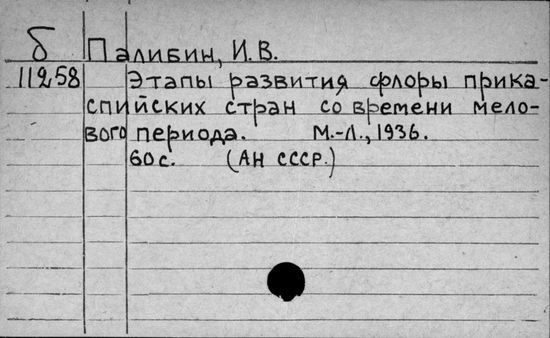 б Палибин, И.В.
11258 Этапы развития флоры прика-
спийских стран со времени мело-
вого периода. М.-Л., 1936.
60 с. (АН СССР.)